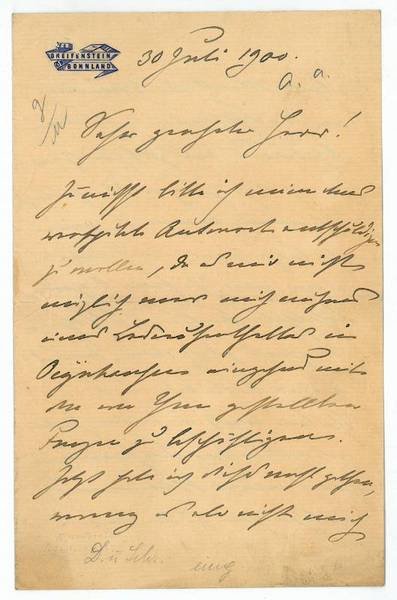 GREIFENSTEIN
BONNLAND
30 Juli 1900.
a. a.
Sehr geehrter Herr!
Zunächst bitte ich meine
verspätete Antwort entschuldigen
zu wollen, da es mir nicht
möglich war mich während
eines Badeaufenthaltes in
Oeynhausen eingehend mit
den von Ihnen gestellten
Fragen zu beschäftigen.
Jetzt habe ich dies gethan,
wenn es aber nicht mich